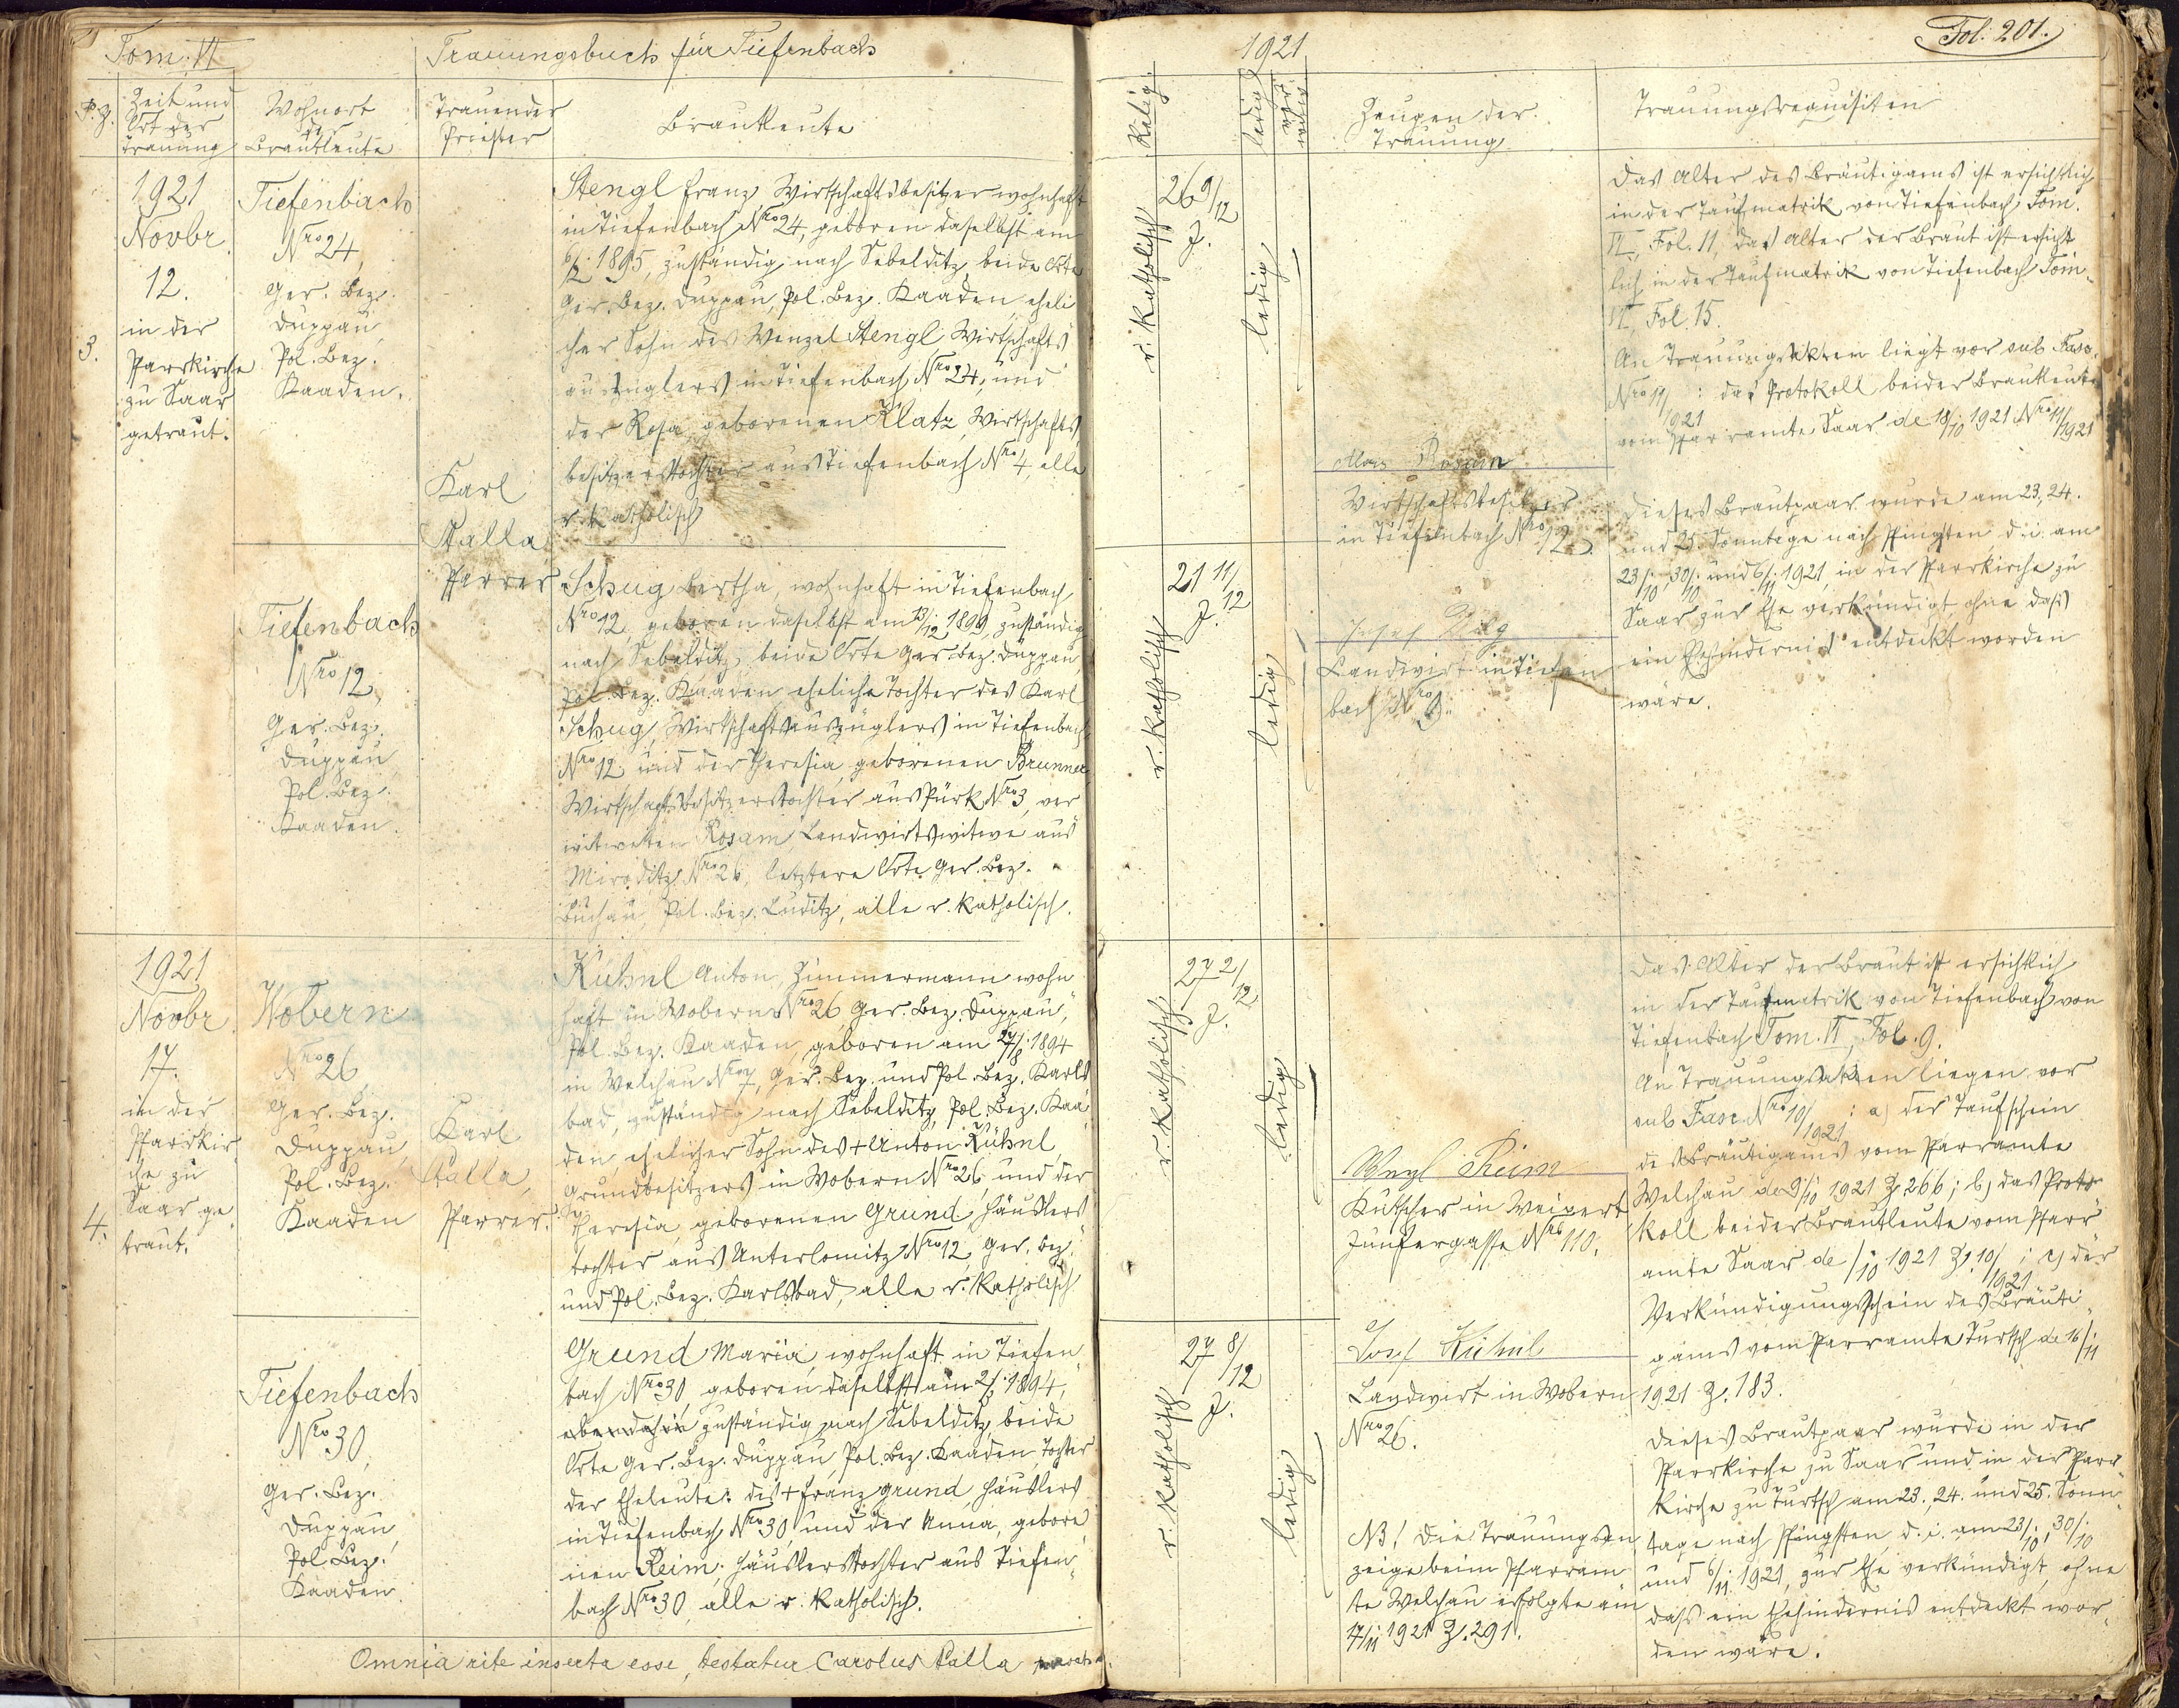 Tom. VI
Trauungsbuch für Tiefenbach
P. Z.
Zeit und
Ort der
Trauung
Wohnort
der
Brautleute
Trauender
Priester
Brautleute
1921
Novbr.
12.
in der
Pfarrkirche
zu Saar
getraut.
3.
Tiefenbach
Nro 24,
Ger. Bez.
Duppau,
Pol. Bez.
Kaaden.
Tiefenbach
Nro 12,
Ger. Bez.
Duppau
Pol. Bez.
Kaaden.
Karl
Palla
Pfarrer
Stengl Franz, Wirtschaftsbesitzer wohnhaft
in Tiefenbach Nro 24, geboren daselbst am
1895, zuständig nach Sebelditz, beide Orte
Ger. Bez. Duppau, Pol. Bez. Kaaden, eheli
cher Sohn des Wenzel Stengl Wirtschafts
auszüglers in Tiefenbach Nro 24, und
der Rosa, geborenen Klatz, Wirtschafts
besitzerstochter aus Tiefenbach Nro 4, alle
r. katholisch
Schug Bertha, wohnhaft in Tiefenbach
Nro 12, geboren daselbst am 13/12 1899, zuständig
nach Sebelditz, beide Orte Ger. Bez. Duppau,
Pol. Bez. Kaaden, eheliche Tochter des Karl
Schug, Wirtschaftsauszüglers in Tiefenbach
Nro 12 und der Theresia, geborenen Brunner
Wirtschaftsbesitzerstochter aus Pürk Nro 3, ver
witweten Rosam, Landwirtswitwe aus
Miroditz Nro 26, letztere Orte Ger. Bez.
Buchau, Pol. Bez. Luditz, alle r. katholisch.
1921
Novbr.
17.
in der
Pfarrkir
che zu
Saar ge
traut.
4.
Wobern
Nro 26
Ger. Bez.
Duppau,
Pol. Bez.
Kaaden
Karl
Palla,
Pfarrer.
Kühnl Anton, Zimmermann wohn
haft in Wobern Nro 26 Ger. Bez. Duppau,
Pol. Bez. Kaaden, geboren am 27/8 1894
in Welchau Nro 7, Ger. Bez. und Pol. Bez. Karls
bad, zuständig nach Sebelditz, Pol. Bez. Kaa
den, ehelicher Sohn des + Anton Kühnl,
Grundbesitzers in Wobern Nro 26, und der
Theresia, geborenen Grund, Häuslers
tochter aus Unterlomitz Nro 12, Ger. Bez.
und Pol. Bez. Karlsbad, alle r. katholisch
Tiefenbach
Nro 30,
Ger. Bez.
Duppau,
Pol. Bez.
Kaaden.
Grund Maria, wohnhaft in Tiefen
bach Nro 30, geboren daselbst am 2/3 1894,
ebendahin zuständig nach Sebelditz, beide
Orte Ger. Bez. Duppau, Pol. Bez. Kaaden, Tochter
der Eheleute: des + Franz Grund, Häuslers
in Tiefenbach Nro 30, und der Anna, gebore
nen Reim, Häuslerstochter aus Tiefen
bach Nro 30, alle r. katholisch.
Omnia rite inserta esse, testatur Carolus Palla
1921
Fol. 201.
Religi
ledig
Zeugen der
Trauung
Trauungsrequisiten
26 9/12
J.
r. katholisch
ledig
21 11/12
J.
r. katholisch
ledig
Alois Rosam
Wirtschaftsbesitzer
in Tiefenbach Nro 12
Josef
Landwirt in Tiefen
bach Nro
Das Alter des Bräutigams ist ersichtlich
in der Taufmatrik von Tiefenbach Tom.
VI, Fol. 11, das Alter der Braut ist ersicht
lich in der Taufmatrik von Tiefenbach Tom.
VI, Fol. 15.
An Trauungsakten liegt vor sub Fasc.
Nro 11/1921: das Protokoll beider Brautleute
vom Pfarramte Saar de 18/10 1921 Nro 11/1921
Dieses Brautpaar wurde am 23, 24.
und 25. Sonntage nach Pfingsten, d. i. am
23/10, 30/10 und 6/11 1921, in der Pfarrkirche zu
Saar zur Ehe verkündigt, ohne dass
ein Ehehindernis entdeckt worden
wäre.
27 2/12
J.
r. katholisch
ledig
27 8/12
J.
r. katholisch
ledig
Wenzl Reim
Kutscher in Weipert
Jungfergasse Nro 110.
Josef Kühnl
Landwirt in Wobern
Nro 26.
NB! Die Trauungsan
zeige beim Pfarram
te Welchau erfolgte am
17/11 1921 Z. 291.
Das Alter der Braut ist ersichtlich
in der Taufmatrik von Tiefenbach von
Tiefenbach Tom. VI, Fol. 9.
An Trauungsakten liegen vor
sub Fasc. Nro 10/1921: a) der Taufschein
des Bräutigams vom Pfarramte
Welchau de 9/10 1921 Z 266; b) das Proto
koll beider Brautleute vom Pfarr
amte Saar de /10 1921 Z. 10/1921; c) der
Verkündigungsschein des Bräuti
gams vom Pfarramte Turtsch de 16/11
1921 Z. 183.
Dieses Brautpaar wurde in der
Pfarrkirche zu Saar und in der Pfarr
kirche zu Turtsch am 23., 24. und 25. Sonn
tage nach Pfingsten, d. i. am 23/10, 30/10
und 6/11. 1921, zur Ehe verkündigt, ohne
dass ein Ehehindernis entdeckt wor
den wäre.